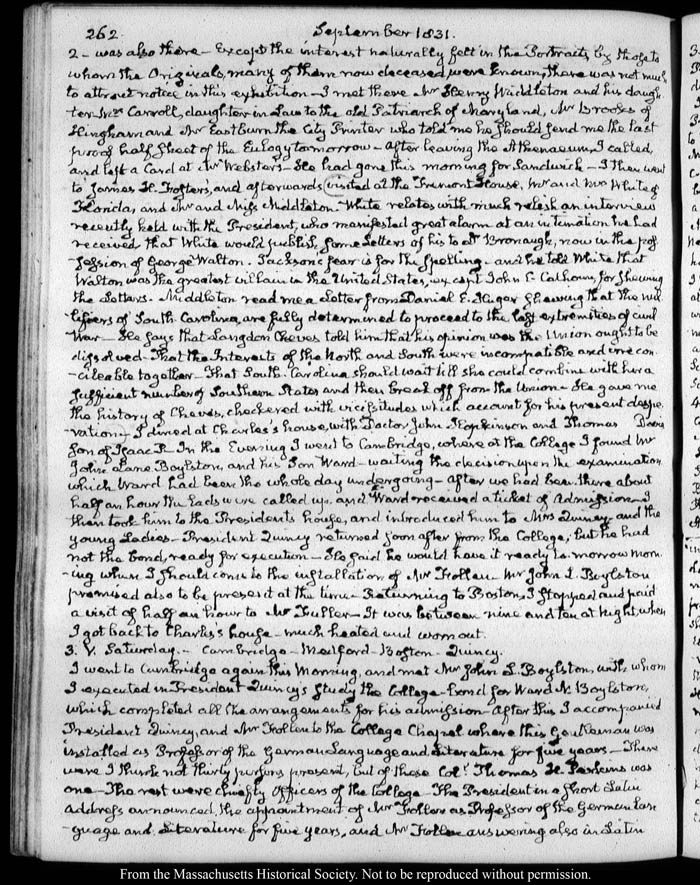 262. September 1831.
2 - was also there - Except the interest naturally felt in the Portraits by those to
whom the Originals, many of them now deceased, were known, there was not much
to attract notice in this exhibition - I met there Mr Henry Middleton and his daugh-
ter Mrs Carroll, daughter in Law to the old Patriarch of Maryland, Mr Brooks of
Hingham and Mr Eastburn the City Printer who told me he should send me the last
proof half sheet of the Eulogy tomorrow - After leaving the Athenaeum, I called,
and left a Card at Mr Webster's - He had gone this morning for Sandwich - I then went
to James H. Foster's, and afterwards visited at the Tremont House, Mr and Mrs White of
Florida, and Mr and Miss Middleton - White relates with much relish an interview
recently held with the President, who manifested great alarm at an intimation he had
received that White would publish some Letters of his to Bronaugh, now in the pos-
session of George Walton. Jackson's fear is for the spelling - and he told White that
Walton was the greatest villain in the United States, except John C. Calhoun, for shewing
the Letters - Middleton read me a Letter from Daniel E. Huger shewing that the nul-
lifiers of South Carolina, are fully determined to proceed to the last extremities of civil
War - He says that Langdon Cheves told him that his opinion was the Union ought to be
dissolved - That the Interests of the North and South were incompatible and irrecon-
-cileable together - That South Carolina should wait till she could combine with her a
sufficient number of Southern States and then break off from the Union - He gave me
the history of Cheves, checkered with vicissitudes which account for his present despe-
-ration - I dined at Charles's house, with Doctor John Hopkinson and Thomas Davis
son of Isaac P - In the Evening I went to Cambridge, where at the College I found Mr
John Lane Boylston, and his Son Ward - waiting the decision upon the examination
which Ward had been the whole day undergoing - After we had been there about
half an hour the Lads were called up, and Ward received a ticket of Admission - I
then took him to the President's house, and introduced him to Mrs Quincy and the
young Ladies - President Quincy returned soon after from the College, but he had
not the bond, ready for execution - He said he would have it ready to-morrow morn-
-ing when I should come to the installation of Mr Follen - Mr John L. Boylston
promised also to be present at the time - Returning to Boston, I stopped and paid
a visit of half an hour to Mr Fuller - It was between nine and ten at Night, when
I got back to Charles's house - much heated and worn out.
3. V. Saturday. - Cambridge - Medford - Boston - Quincy.
I went to Cambridge again this Morning, and met Mr John L. Boylston, with whom
I executed in President Quincy's Study the College-bond for Ward N. Boylston,
which completed all the arrangements for his admission - After this I accompanied
President Quincy, and Mr Follen to the College Chapel where this Gentleman was
installed as Professor of the German Language and Literature for five years - There
were I think not thirty persons present, but of these Coll. Thomas H. Perkins was
one - The rest were chiefly Officers of the College - The President in a short Latin
Address announced the appointment of Mr Follen as Professor of the German Lan-
-guage and Literature for five years, and Mr Follen answering also in Latin
From the Massachusetts Historical Society. Not to be reproduced without permission.